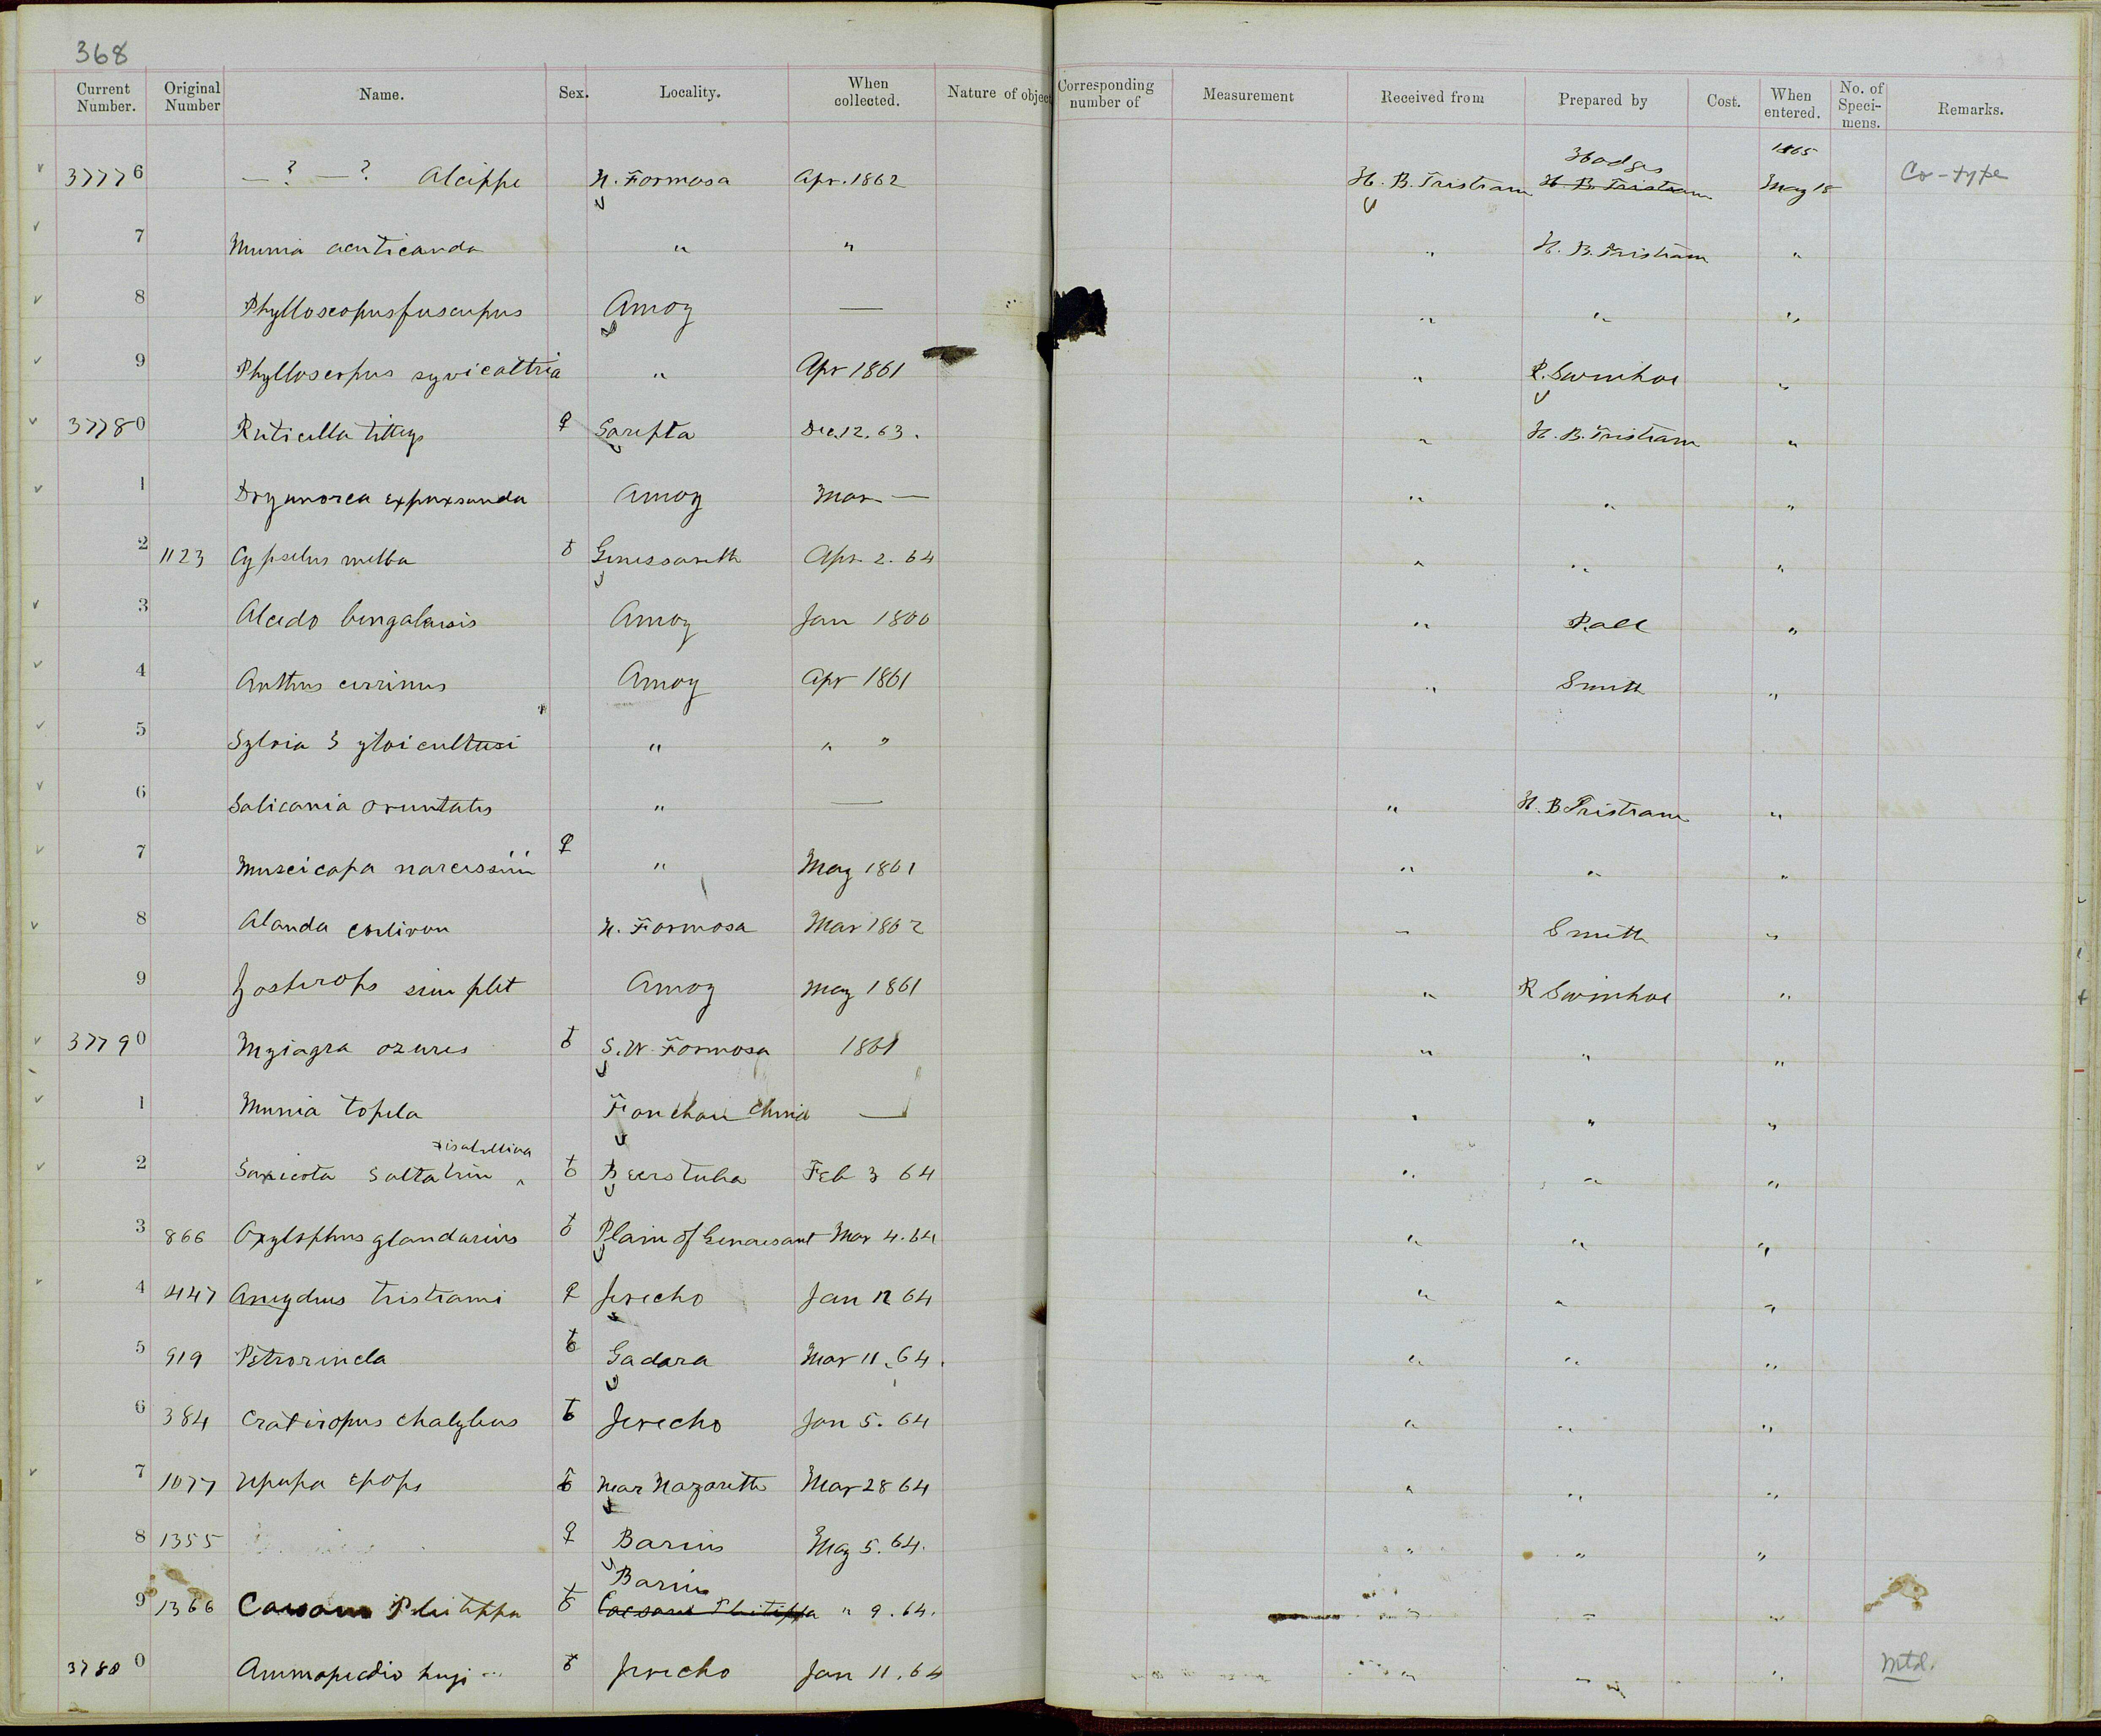 368
Current Number. Original Number Name. Sex. Locality. When collected. Nature of objec Corresponding number of Measurement Received from Prepared by Cost. When entered. No. of Speci-mens. Remarks.
37776 — ? — ? Alcippe N. Formosa Apr. 1862 H. B. Tristram Hodges H. B. Tristram 1865 May 18 Co-type
7 Munia acuticauda " " " H. B. Tristram "
8 Phylloscopus fuscupus Amoy — " " "
9 Phylloscopus syvicaltria " Apr 1861 " R. Swinhoe "
37780 Ruticilla tittys ♀ Sarepta Dec. 12. 63. " H. B. Tristram "
1 Amoy Mar — " " "
2 1123 Cypselus melba ♂ Genessareth Apr 2. 64 " " "
3 Alcedo bengalensis Amoy Jan 1860 " "
4 Anthus cervinus Amoy Apr 1861 " Smith "
5 Sylvia " " "
6 Salicaria orientalis " — " H. B Tristram "
7 Muscicapa narcissini ♀ " May 1861 " " "
8 Alauda N. Formosa Mar 1862 " Smith "
9 Zosterops simplet Amoy May 1861 " R Swinhoe "
37790 Myiagra azures ♂ S. W. Formosa 1861 " " "
1 Munia topela Fouchou China — " " "
2 Saxicola Saltatrin isabellina ♂ Beerstuba Feb 3 64 " " "
3 866 Oxylophus glandarius ♂ Plain of Genaesaret Mar 4. 64 " " "
4 447 Amydrus tristrami ♀ Jericho Jan 12 64 " " "
5 919 Petrocincla ♂ Gadara Mar 11. 64. " " "
6 384 Crateropus chalybeus ♂ Jericho Jan 5. 64 " " "
7 1077 Upupa epops ♂ Near Nazareth Mar 28 64 " " "
8 1355 ♀ Barius May 5. 64. " " "
9 1366 Caesarea Philippa ♂ Barius Caesarea Philippa " 9. 64. " " "
37800 Ammoperdix heyi ♂ Jericho Jan 11. 64 " " " Mtd.